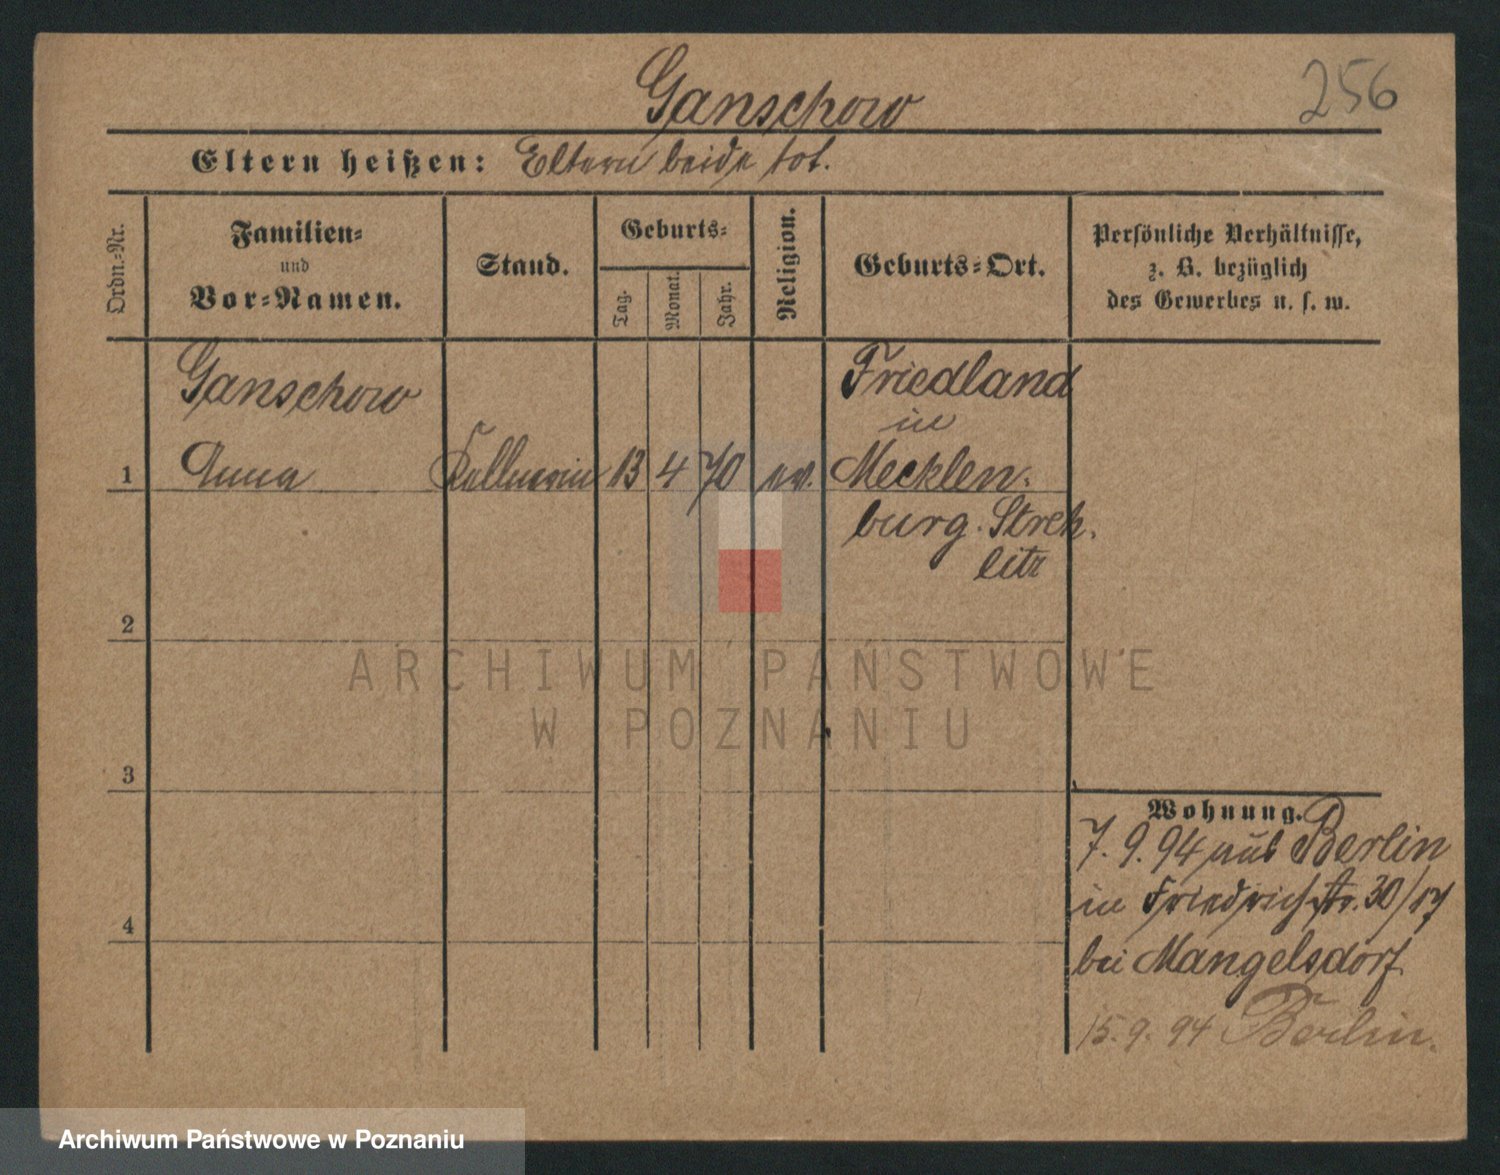 Ganschow
256
Eltern heißen: Eltern beide tot.
Ordn.-Nr.
Familien-
und
Vor-Namen.
Stand.
Geburts-
Tag.
Monat.
Jahr.
Religion.
Geburts-Ort.
Persönliche Verhältnisse,
z. B. bezüglich
des Gewerbes u. s. w.
Ganschow
Friedland
in
1 Anna Kellnerin 13 4 70 ev. Mecklen-
burg. Streh-
litz
2
ARCHIWUM PAŃSTWOWE
W POZNANIU
3
Wohnung.
7. 9. 94 aus Berlin
in Friedrichstr. 30/17
4
bei Mangelsdorf
15. 9. 94 Berlin.
Archiwum Państwowe w Poznaniu